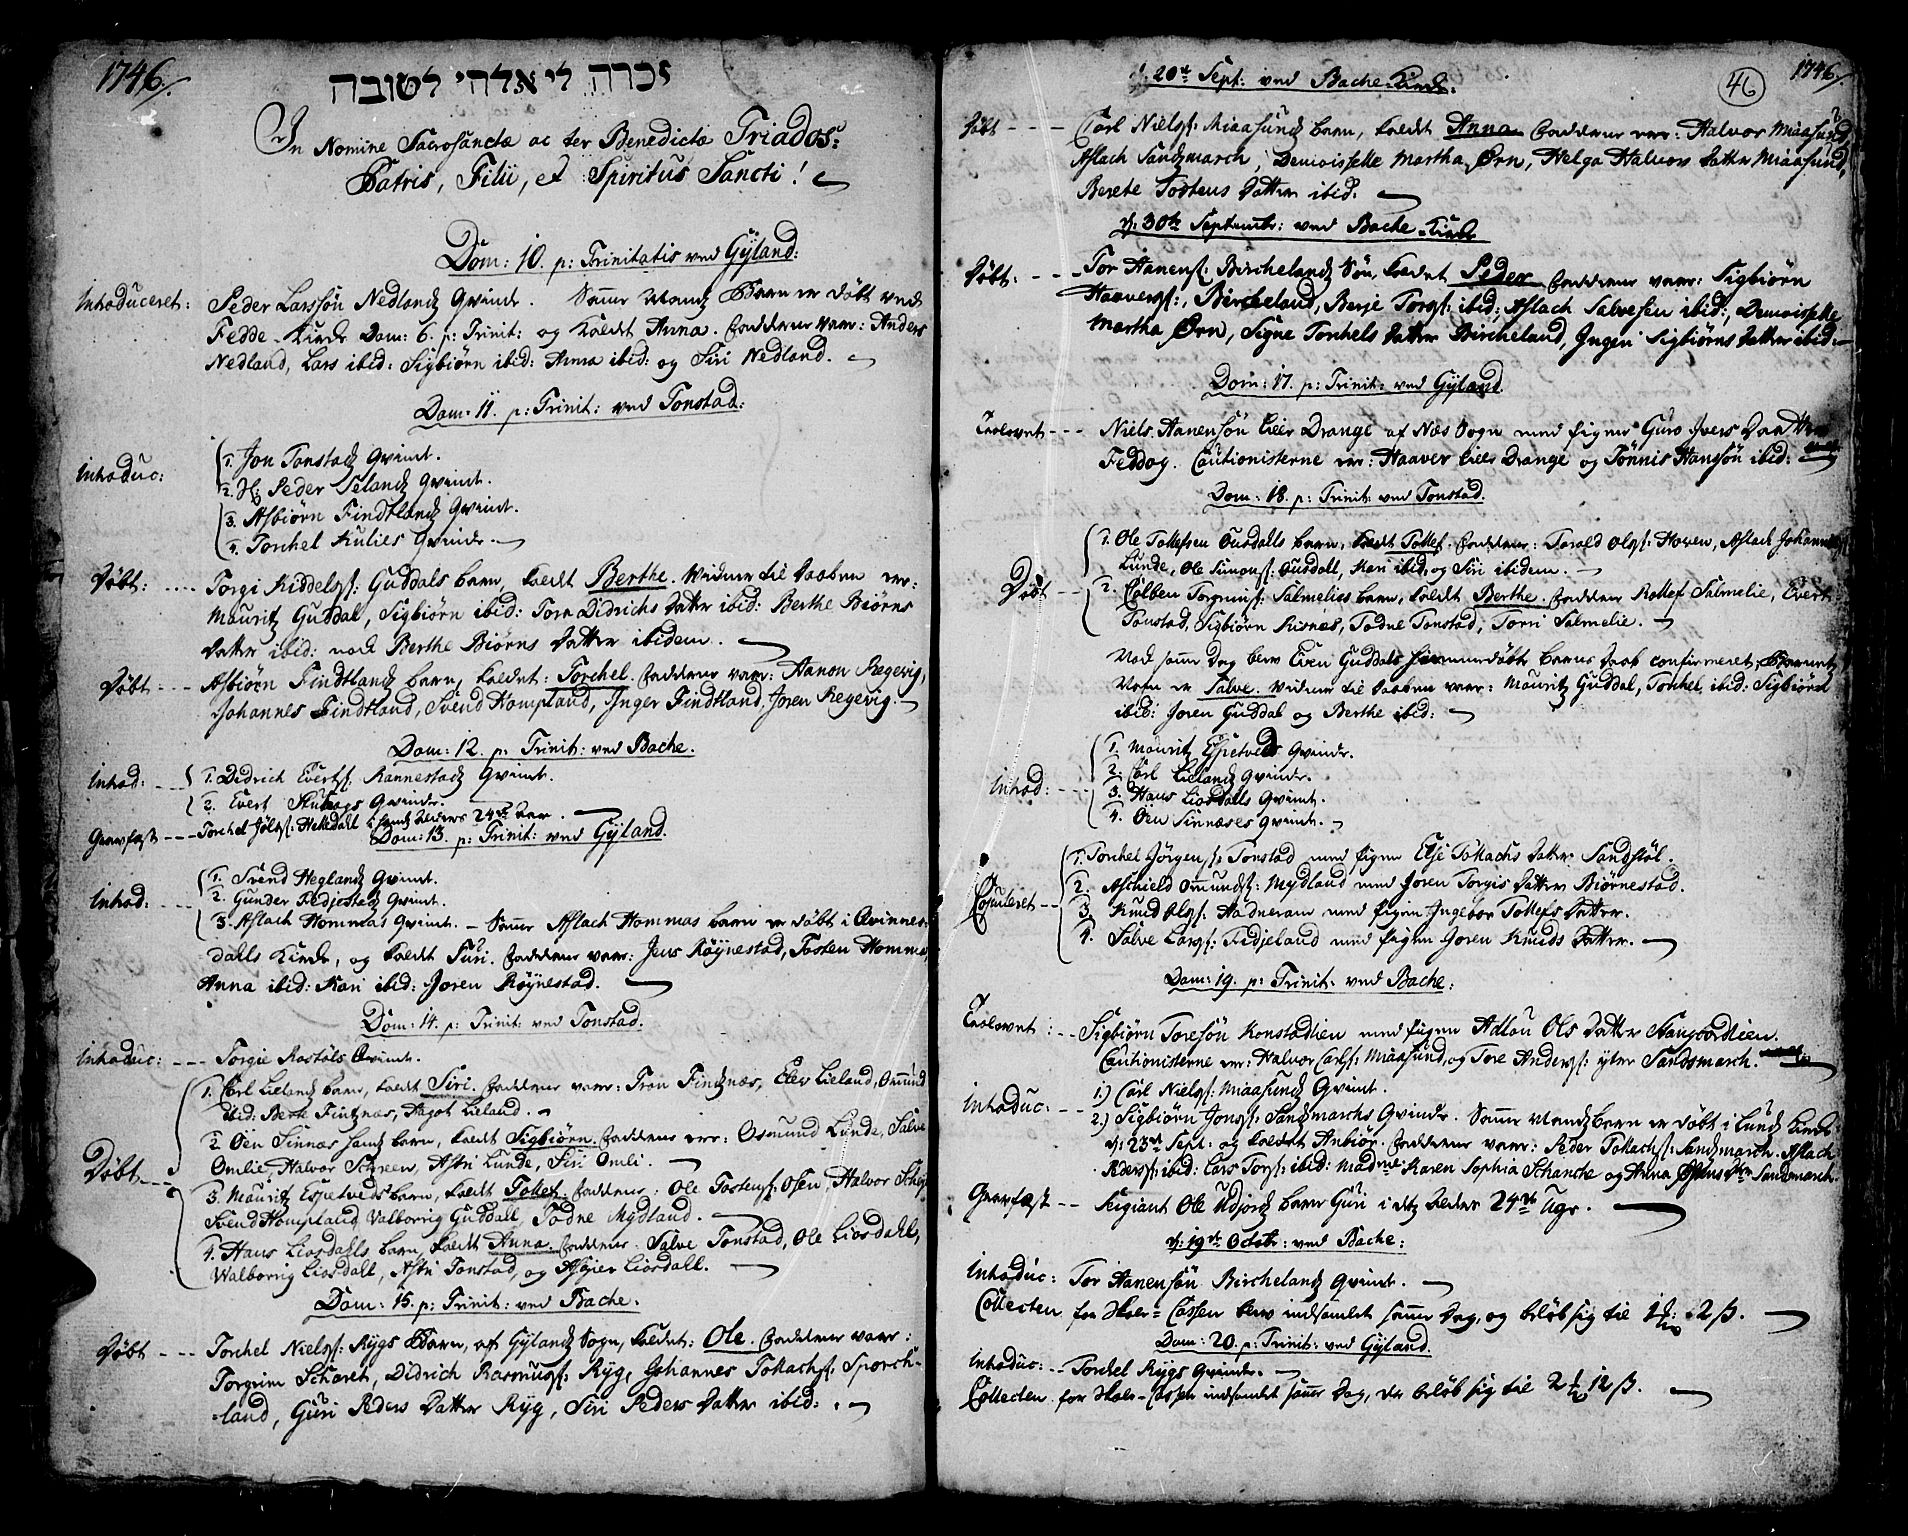 1746/.
זכרה לי אלהי לטובה
In Nomine Sacrosanctæ ac ter Benedictæ Triados:
Patris, Filii, et Spiritus Sancti!
Dom: 10. p: Trinitatis ved Gyland:
Introduceret: Peder Larssøn Nedlands Qvinde. Samme Mands Barn er døbt ved
Fedde-Kirke Dom: 6. p: Trinit: og kaldt Anna. Fadderne vare: Anders
Nedland, Lars ibid: Sigbiørn ibid: Anna ibid: og Siri Nedland.
Dom: 11. p: Trinit: ved Tonstad:
Introduc:
1. Jon Tonstads Qvinde.
2. H: Peder Selands Qvinde.
3. Asbiørn Findtlands Qvinde.
4. Torchel Kulies Qvinde.
Døbt: Torgi Kiddels: Guddals barn, kaldt Berthe. Vidner til Daaben er:
Mauritz Guddal, Sigbiørn ibid: Torn Didrichs Datter ibid: Berthe Biørns
Datter ibid: nock Berthe Biørns Datter ibidem.
Døbt: Asbiørn Findtlands barn, kaldet: Torchel. Fadderne vare: Aanon Regevig,
Johannes Findtland, Svend Hompland, Inger Findtland, Joren Regevig.
Dom: 12. p: Trinit: ved Bache.
Introd:
1. Didrich Evertss: Rannestads Qvinde.
2. Evert Qvinde.
Gravfæst Torchel Heltedall i hands Alders 24de Aar.
Dom: 13. p: Trinit: ved Gyland.
Introd:
1. Svend Heglands Qvinde.
2. Gunder Fedjesteds Qvinde.
3. Aslach Hommas Qvinde. – Samme Aslach Hommas barn er døbt i Qvinnes-
dalls Kirke, og kaldt Turi. Fadderne vare: Jens Røynestad, Tosten Homma,
Anna ibid: Kari ibid: Joren Røynestad.
Dom: 14. p: Trinit: ved Tonstad.
Introduc: Torgie Rostøls Qvinde.
Døbt
1. Carl Lielands barn, kaldt Siri. Fadderne vare: Tron Fintznæs, Elev Lieland, Omund
ibid: Berte Fintznæs, Aagot Lieland.
2. Øen Sinnæs hands barn, kaldt Sigbiørn. Fadderne er: Osmund Lunde, Salve
Omlie, Halvor Schreen, Astri Lunde, Siri Omli.
3. Mauritz Espetveds barn, kaldt Tollef. Fadderne: Ole Tostens: Osen, Halvor
Svend Hompland, Valborrig Guddall, Todne Mydland.
4. Hans Liosdalls barn, kaldt Anna. Fadderne: Salve Tonstad, Ole Liosdall,
Walborrig Liosdall, Astri Tonstad, og Asgier Liosdall.
Dom: 15. p: Trinit: ved Bache.
Døbt Torchel Niels: Rygs Barn, af Gylands Sogn, kaldet: Ole. Fadderne vare:
Torgrim Schoret, Didrich Rasmuss: Ryg, Johannes Tollachs: Sporch-
land, Guri Peders Datter Ryg, Siri Peders Datter ibid:
46
1746/
d: 20de Sept: ved Bache-Kirke.
Døbt Carl Niels: Miaasunds barn, kaldt Anna Fadderne er: Halvor Miaasund,
Aslach Sandsmarch, Demoiselle Martha Ørn, Helga Halvors Datter Miaasund,
Berete Tostens Datter ibid.
d: 30te Septembr: ved Bache-Kirke
Døbt: Tor Aanens: Birchelands Søn, kaldet Peder Fadderne vare: Sigbiørn
Haavers: Bircheland, Berje Tors: ibid: Aslach Salvesen ibid; Demoiselle
Martha Ørn, Signe Torchels Datter Bircheland, Ingeri Sigbiørns Datter ibid:
Dom: 17. p: Trinit: ved Gyland.
Trolovet Niels Aanensøn Lille Drange af Næs Sogn med Pigen Guro Ivers Daatter
Feddog. Cautionisterne er: Haaver Lille Drange og Tønnis Hanssøn ibid:
Dom: 18. p: Trinit: ved Tonstad.
Døbt
1. Ole Tollefsen Ousdalls barn, kaldt Tollef. Fadderne: Torald Ols: Hoven, Aslach Johannes
Lunde, Ole Simons: Ousdall, Kari ibid, og Siri ibidem.
2. Colben Torgrims: Salmelies barn, kaldt Berthe. Fadderne Rollef Salmelie, Evert
Tonstad, Sigbiørn Kusnæs, Todne Tonstad, Torri Salmelie.
Nock samme Dag blev Even Guddals hiemmedøbte barns Daab confirmeret; Barnets
Navn er Salve. Vidner til Daaben vare: Mauritz Guddal, Torchel ibid: Sigbiørn
ibid: Joren Guddal og Berthe ibid:
Introd:
1. Mauritz Espetveds Qvinde.
2. Carl Lielands Qvinde.
3. Hans Liosdalls Qvinde.
4. Øen Sinnæses Qvinde.
Copuleret
1. Torchel Jørgens: Tonstad med Pigen Else Tollachs Datter Sandstøl.
2. Aschield Omunds: Mydland med Joren Torgis Datter Biørnestad.
3. Knud Ols: Hadneram med Pigen Ingebor Tollefs Datter.
4. Salve Lars: Fidjeland med Pigen Joren Knuds Datter.
Dom: 19. p: Trinit: ved Bache:
Trolovet: Sigbiørn Toresøn Konstadlien med Pigen Adlau Ols Datter Stangbordlien.
Cautionisterne er: Halvor Carls: Miaasund, og Tore Anders: ytre Sandsmarch.
Introduc:
1.) Carl Niels: Miaasunds Qvinde.
2.) Sigbiørn Jons: Sandsmarchs Qvinde. Samme Mands barn er døbt i Lunds Kirke
d: 23de Sept: og kaldet Anbiør. Fadderne vare: Peder Tollachs: Sandsmarch. Aslach
Peders: ibid: Lars Tors: ibid: Madme Karen Sophia Schancke og Anna Datr Sandsmarch.
Gravfæst Sergiant Ole Udjords barn Guri i dets Alders 24de Uge.
d: 19de Octobr: ved Bache:
Introduc: Tor Aanensøn Birchelands Qvinde.
Collecten for Skole-Cassen blev indsamlet samme Dag, og beløb sig til 1 2 ß.
Dom: 20. p: Trinit: ved Gyland.
Introduc: Torchel Rygs Qvinde.
Collecten for Skole-Cassen indsamlet samme Dag, der beløb sig til 2 12 ß.